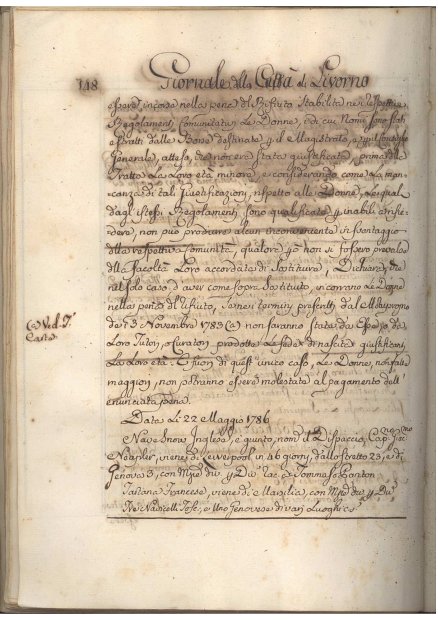 118 Giornale della Città di Livorno
essere incorse nella pena del Rifiuto Stabilita nei respettivi
Regolamenti Comunitativi le Donne, di cui Nomi sono stati
estratti dalle Borse destinate per il Magistrato, o per il Consiglio
Generale, attesa, che non era stata giustificata, prima della
Tratta La Loro età minore, e considerando come La man-
canza di tali Giustificazioni, rispetto alle Donne, Le quali
dagl'istessi Regolamenti sono qualificate per inabili a risie-
dere, non può produrre alcun inconveniente in svantaggio
della respettiva Comunità, qualora poi non si fossero prevalse
della facoltà Loro accordata di sostituire, Dichiara, che
nel solo caso d'aver come sopra sostituto, incorrano Le Donne
nella pena di Rifiuto, se nei termini presenti dal Motuproprio
de 13 Novembre 1783 (a) non saranno state da Esse, o da
Loro Tutori, o Curatori prodotte Le fedi di nascita giustificanti
La Loro età. E fuori di quest'unico caso, Le Donne, non fatte
maggiori, non potranno essere molestate al pagamento dell'
enunciata pena.
(a) Ved. F.
Carte
Data Li 22 Maggio 1786
Nave Snow Inglese, è giunto, nom.
il Dispaccio, Cap.
viene di Liverpool in 46 giorni, dallo stretto 23, e di
Genova 3, con
Tommaso Panton
Tartana Francese, viene di Marsilia, con
e Uno Genovese di varj Luoghi